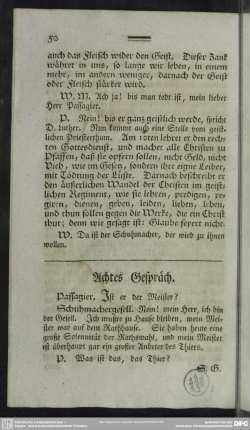 50
auch das Fleisch wider den Geist. Dieser Zank
währet in uns, so lange wir leben, in einem
mehr, im andern weniger, darnach der Geist
oder Fleisch stärker wird.
W. M. Ach ja! bis man todt ist, mein lieber
Herr Passagier.
P. Nein! bis er ganz geistlich werde, spricht
D. Luther. Nun kommt aufs eine Stelle vom geist-
lichen Priesterthum. Am 1oten lehret er den rech-
ten Gottesdienst, und machet alle Christen zu
Pfaffen, daß sie opfern sollen, nicht Geld, nicht
Vieh, wie im Gesetz, sondern ihre eigne Leiber,
mit Tödtung der Lüste. Darnach beschreibt er
den äußerlichen Wandel der Christen im geist-
lichen Regiment, wie sie lehren, predigen, re-
gieren, dienen, geben, leiden, lieben, leben,
und thun sollen gegen
die Werke, die ein Christ
thut; denn wie gesagt ist: Glaube feyret nicht.
W. Da ist der Schuhmacher, der wird zu ihnen
wollen.
Achtes Gespräch.
Passagier. Ist er der Meister?
Schuhmachergesell. Nein! mein Herr, ich bin
der Gesell. Ich mußte zu Hause bleiben, mein Mei-
ster war auf dem Rathhause. Sie haben heute eine
große Solennität der Rathswahl, und mein Meister
ist überhaupt gar ein großer Anbeter des Thiers.
P. Was ist das, das Thier?
S. G.